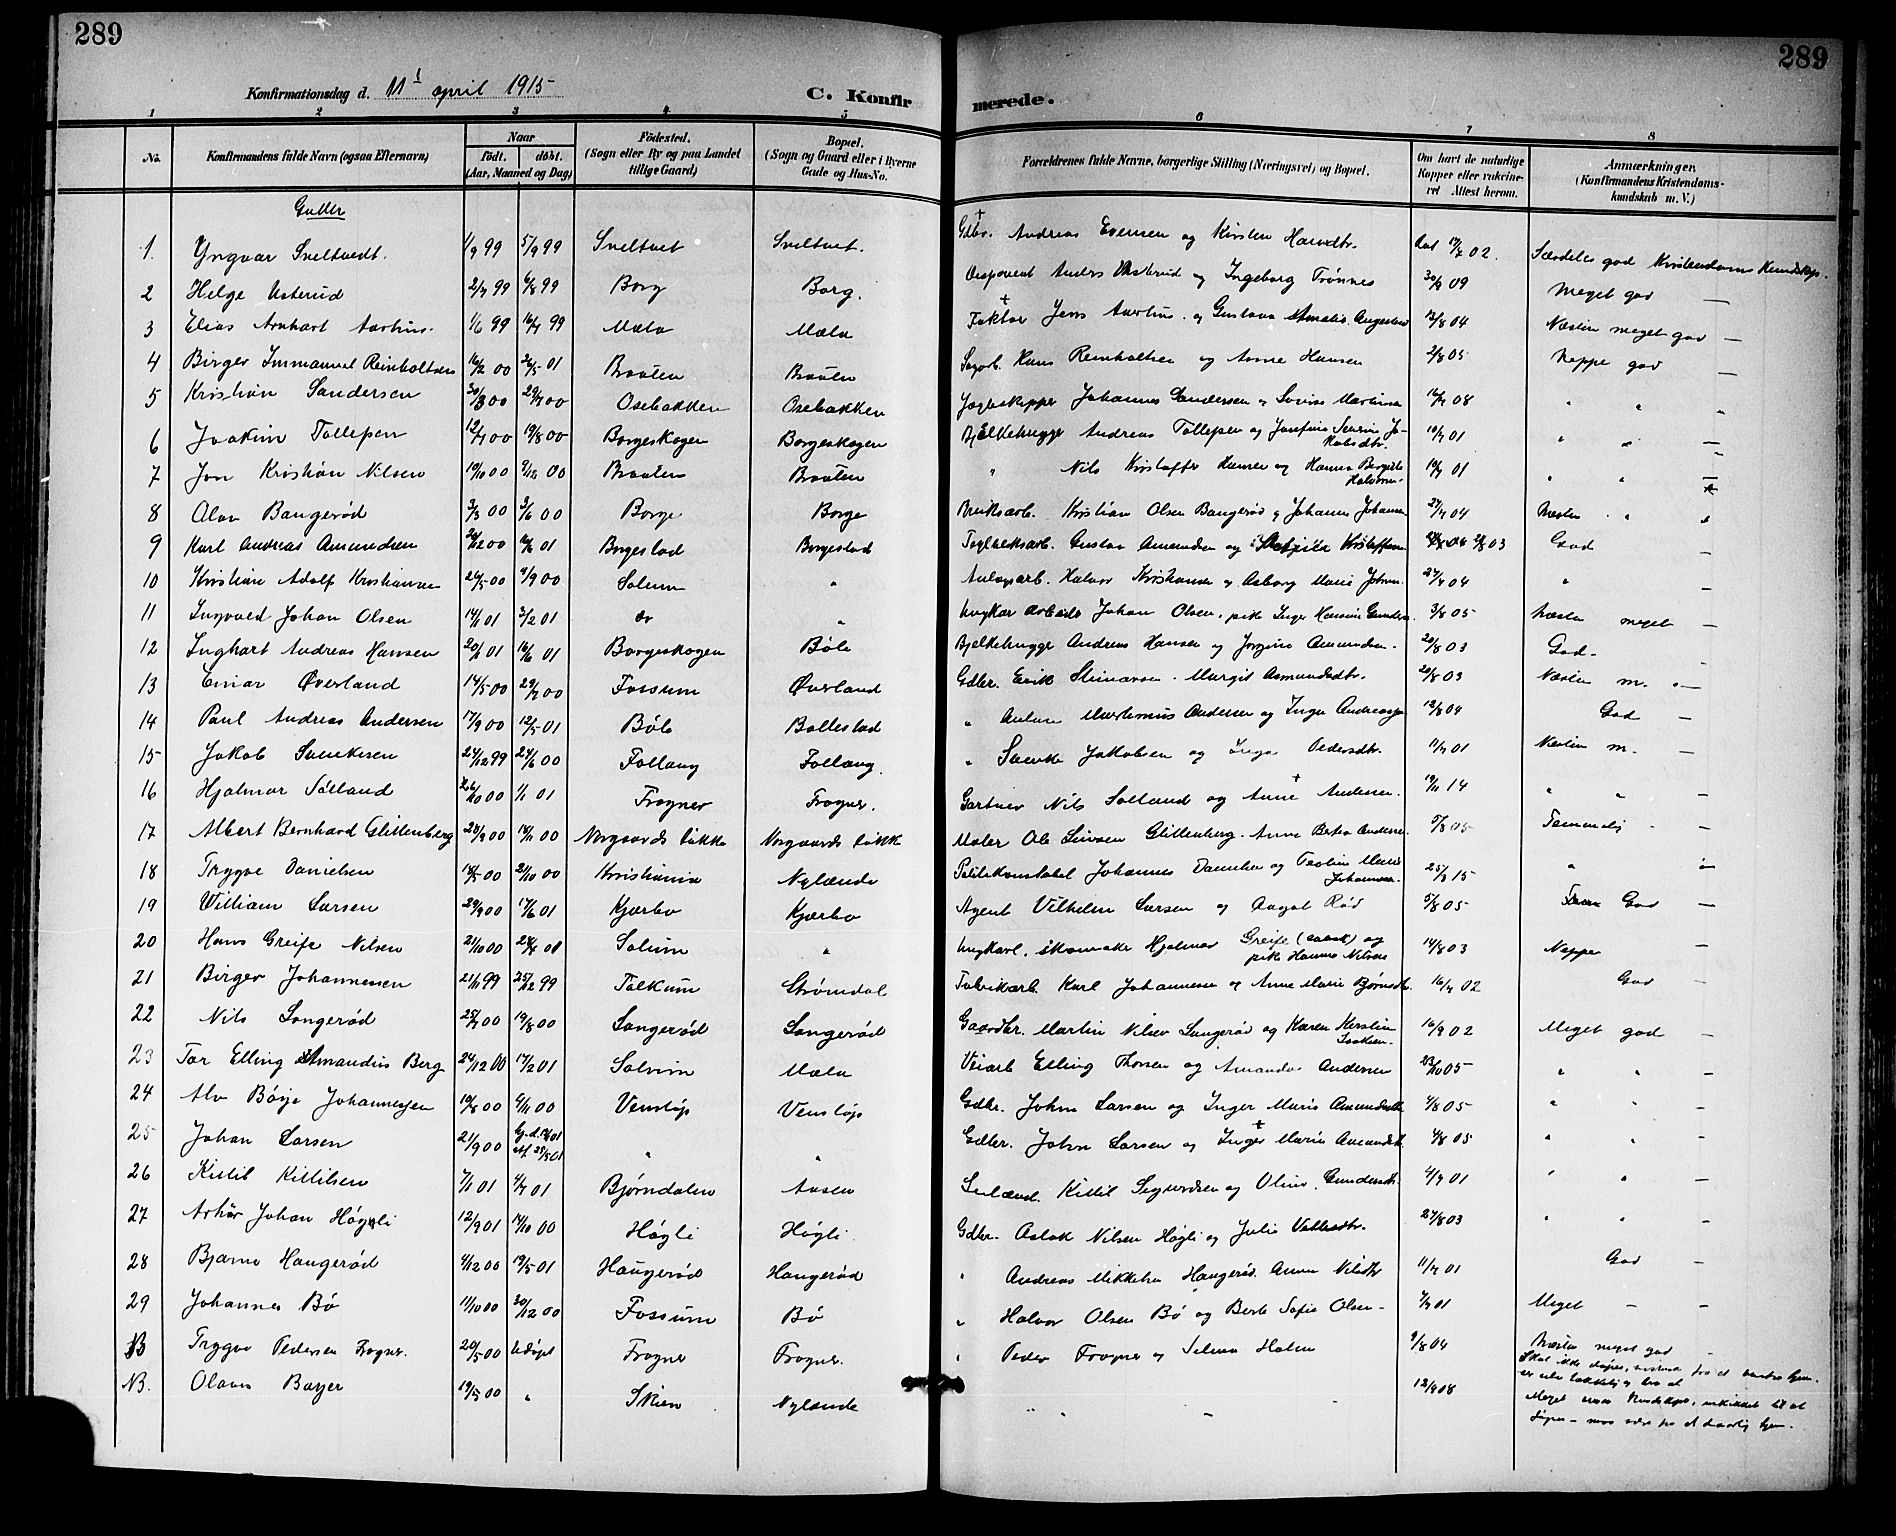 289
289
Konfirmationsdag d. 11te april 1915
C. Konfirmerede.
1 2 3 4 5 6 7 8
No. Konfirmandens fulde Navn (ogsaa Efternavn) Naar födt. döbt. (Aar, Maaned og Dag) Födested. (Sogn eller By og paa Landet tillige Gaard) Bopæl. (Sogn og Gaard eller i Byerne Gade og Hus-No. Forældrenes fulde Navne, borgerlige Stilling (Næringsvei) og Bopæl. Om havt de naturlige Kopper eller vakcineret Attest herom. Anmærkninger. (Konfirmandens Kristendomskundskab m. V.)
Gutter
1. Yngvar Sveltvedt. 1/9 99 5/9 99 Sveltvet Sveltvet. Gdbr. Andreas Evensen og Kirsten 02. Særdeles god Kristendoms Kundskap.
2 Helge Usterud 2/7 99 6/8 99 Borg Borg. Disponent Anders Usterud og Ingeborg Trønnes 30/8 09 Meget god —
3 Elias Arnhart Aarhus. 1/6 99 16/7 99 Mæla Mæla Faktor Jens Aarhus. og Gustava Amalie 12/8 04 Næsten meget god —
4 Birger Immanuel Reinholtsen 16/2 00 26/5 01 Braaten Braaten Sagarb. Hans Reinholtsen og Anne Hansen 2/8 05 Neppe god —
5 Kristian Sandersen 30/3 00 29/7 00 Osebakken Osebakken Jagteskipper Johannes Sandersen og Lovise Martinsen 14/7 08 " " "
6 Joakim Tollefsen 12/7 00 19/8 00 Borgeskogen Borgeskogen Bjelkehugger Andreas Tollefsen og Josefine Severine Jakobsdtr. 10/7 01 " " —
7 Jon Kristian Nilsen 19/10 00 9/12 00 Braaten Braaten " Nils Kristoffer Hansen og Hanna Bergitte Halvorsen 19/7 01 " " —
8 Olav Bangerød 3/3 00 3/6 00 Borge Borge Bruksarb. Kristian Olsen Bangerød og Johanne Johansen 27/7 04 Næsten " "
9 Karl Andreas Amundsen 00 01 Borgestad Borgestad Teglverksarb. Gustav Amundsen og 03 God —
10 Kristian Adolf Kristiansen 26/5 00 9/9 00 Solum " Anlegsarb. Halvor Kristiansen og Asborg Marie 27/7 04 "
11 Ingvald Johan Olsen 14/1 01 3/2 01 do " Ungkar arbeider Johan Olsen. pike Inger Hansine Gundersen. 3/8 05 Næsten meget —
12 Inghart Andreas Hansen 20/1 01 16/6 01 Borgeskogen Bøle Bjelkehugger Andreas Hansen og Jorgine Amundsen. 20/8 03 God-
13 Einar Øverland 14/5 00 29/7 00 Fossum Øverland Gdbr. Erik Steinarsen. Margit Asmundsdtr. 20/8 03 Næsten m. " —
14 Paul Andreas Andersen 17/9 00 12/5 01 Bøle Bollestad " Anton Martinius Andersen og Inger 12/8 04 God —
15 Jakob Svenkesen 24/12 99 24/6 00 Follaug Follaug. " Svenke Jakobsen og Inga Pedersdtr. 11/7 01 Næsten m. —
16 Hjalmar Solland 26/10 00 1/1 01 Frogner Frogner. Gartner Nils Solland og Anne Andersen. 19/11 14 " " —
17 Albert Bernhard Glittenberg 23/9 00 18/11 00 Norgaards løkke Norgaards løkke Maler Ole Simsen Glittenberg. Anne Bertea Andersen. 5/8 05 Temmelig —
18 Trygve Danielsen 18/5 00 21/10 00 Kristiania Nylænde Politikonstabel Johannes Danielsen og Teoline Marie Johannsen. 25/3 15 " "
19 William Larsen 29/9 00 17/6 01 Kjørbo Kjørbo Agent Vilhelm Larsen og Aagot Rød 5/8 05 God —
20 Hans Greife Nilsen 21/10 00 01 Solum " Ungkarl. skomaker Hjalmar Greife (dansk) og pike Hanna Nilsen 14/8 03 Neppe —
21 Birger Johannessen 21/11 99 25/12 99 Tolkum Strømdal Fabrikarb. Karl Johannessen og Anne Marie Bjørnsdtr. 16/7 02 God —
22 Nils Langerød 25/7 00 19/8 00 Langerød Langerød Gaardbr. Martin Nilsen Langerød og Karen Kerstine Isaksen. 16/9 02 Meget god —
23 Tor Elling Amandus Berg 24/12 00 17/2 01 Solum Mæla Veiarb Elling Thorsen og Amanda Andersen 23/10 05 " " —
24 Alv Børje Johannessen 19/8 00 4/11 00 Venstøp Venstøp Gdbr. John Larsen og Inger Marie Amundsdtr. 4/8 05 " " —
25 Johan Larsen 21/9 00 " " Gdbr. John Larsen og Inger Marie Amundsdtr. 4/8 05 " " —
26 Kittil Kittilsen 7/1 01 4/7 01 Bjørndalen Aasen Kittil Sigurdsen og Oline Gundersdtr. 4/9 01 " " —
27 Arthur Johan Høgli 12/9 01 14/10 00 Høgli Høgli. Gdbr. Aslak Nilsen Høgli og Julie 27/8 03 " " —
28 Bjarne Haugerød 4/12 00 19/5 01 Haugerød Haugerød " Andreas Mikkelsen Haugerød. Anne Nilsdtr 11/7 01 God —
29 Johannes Bø 11/10 00 30/12 00 Fossum Bø " Halvor Olsen Bø og Berte Sofie Olsen- 7/9 01 Meget — —
NB Trygve Pedersen Frogner. 20/5 00 Udøpt Frogner Frogner. " Peder Frogner og Selma Holm 9/8 04 Næsten meget god —
Skal ikke døpes,
NB. Olaus Bayer 19/5 00 " Skien Nylænde " " — 12/9 08 Meget